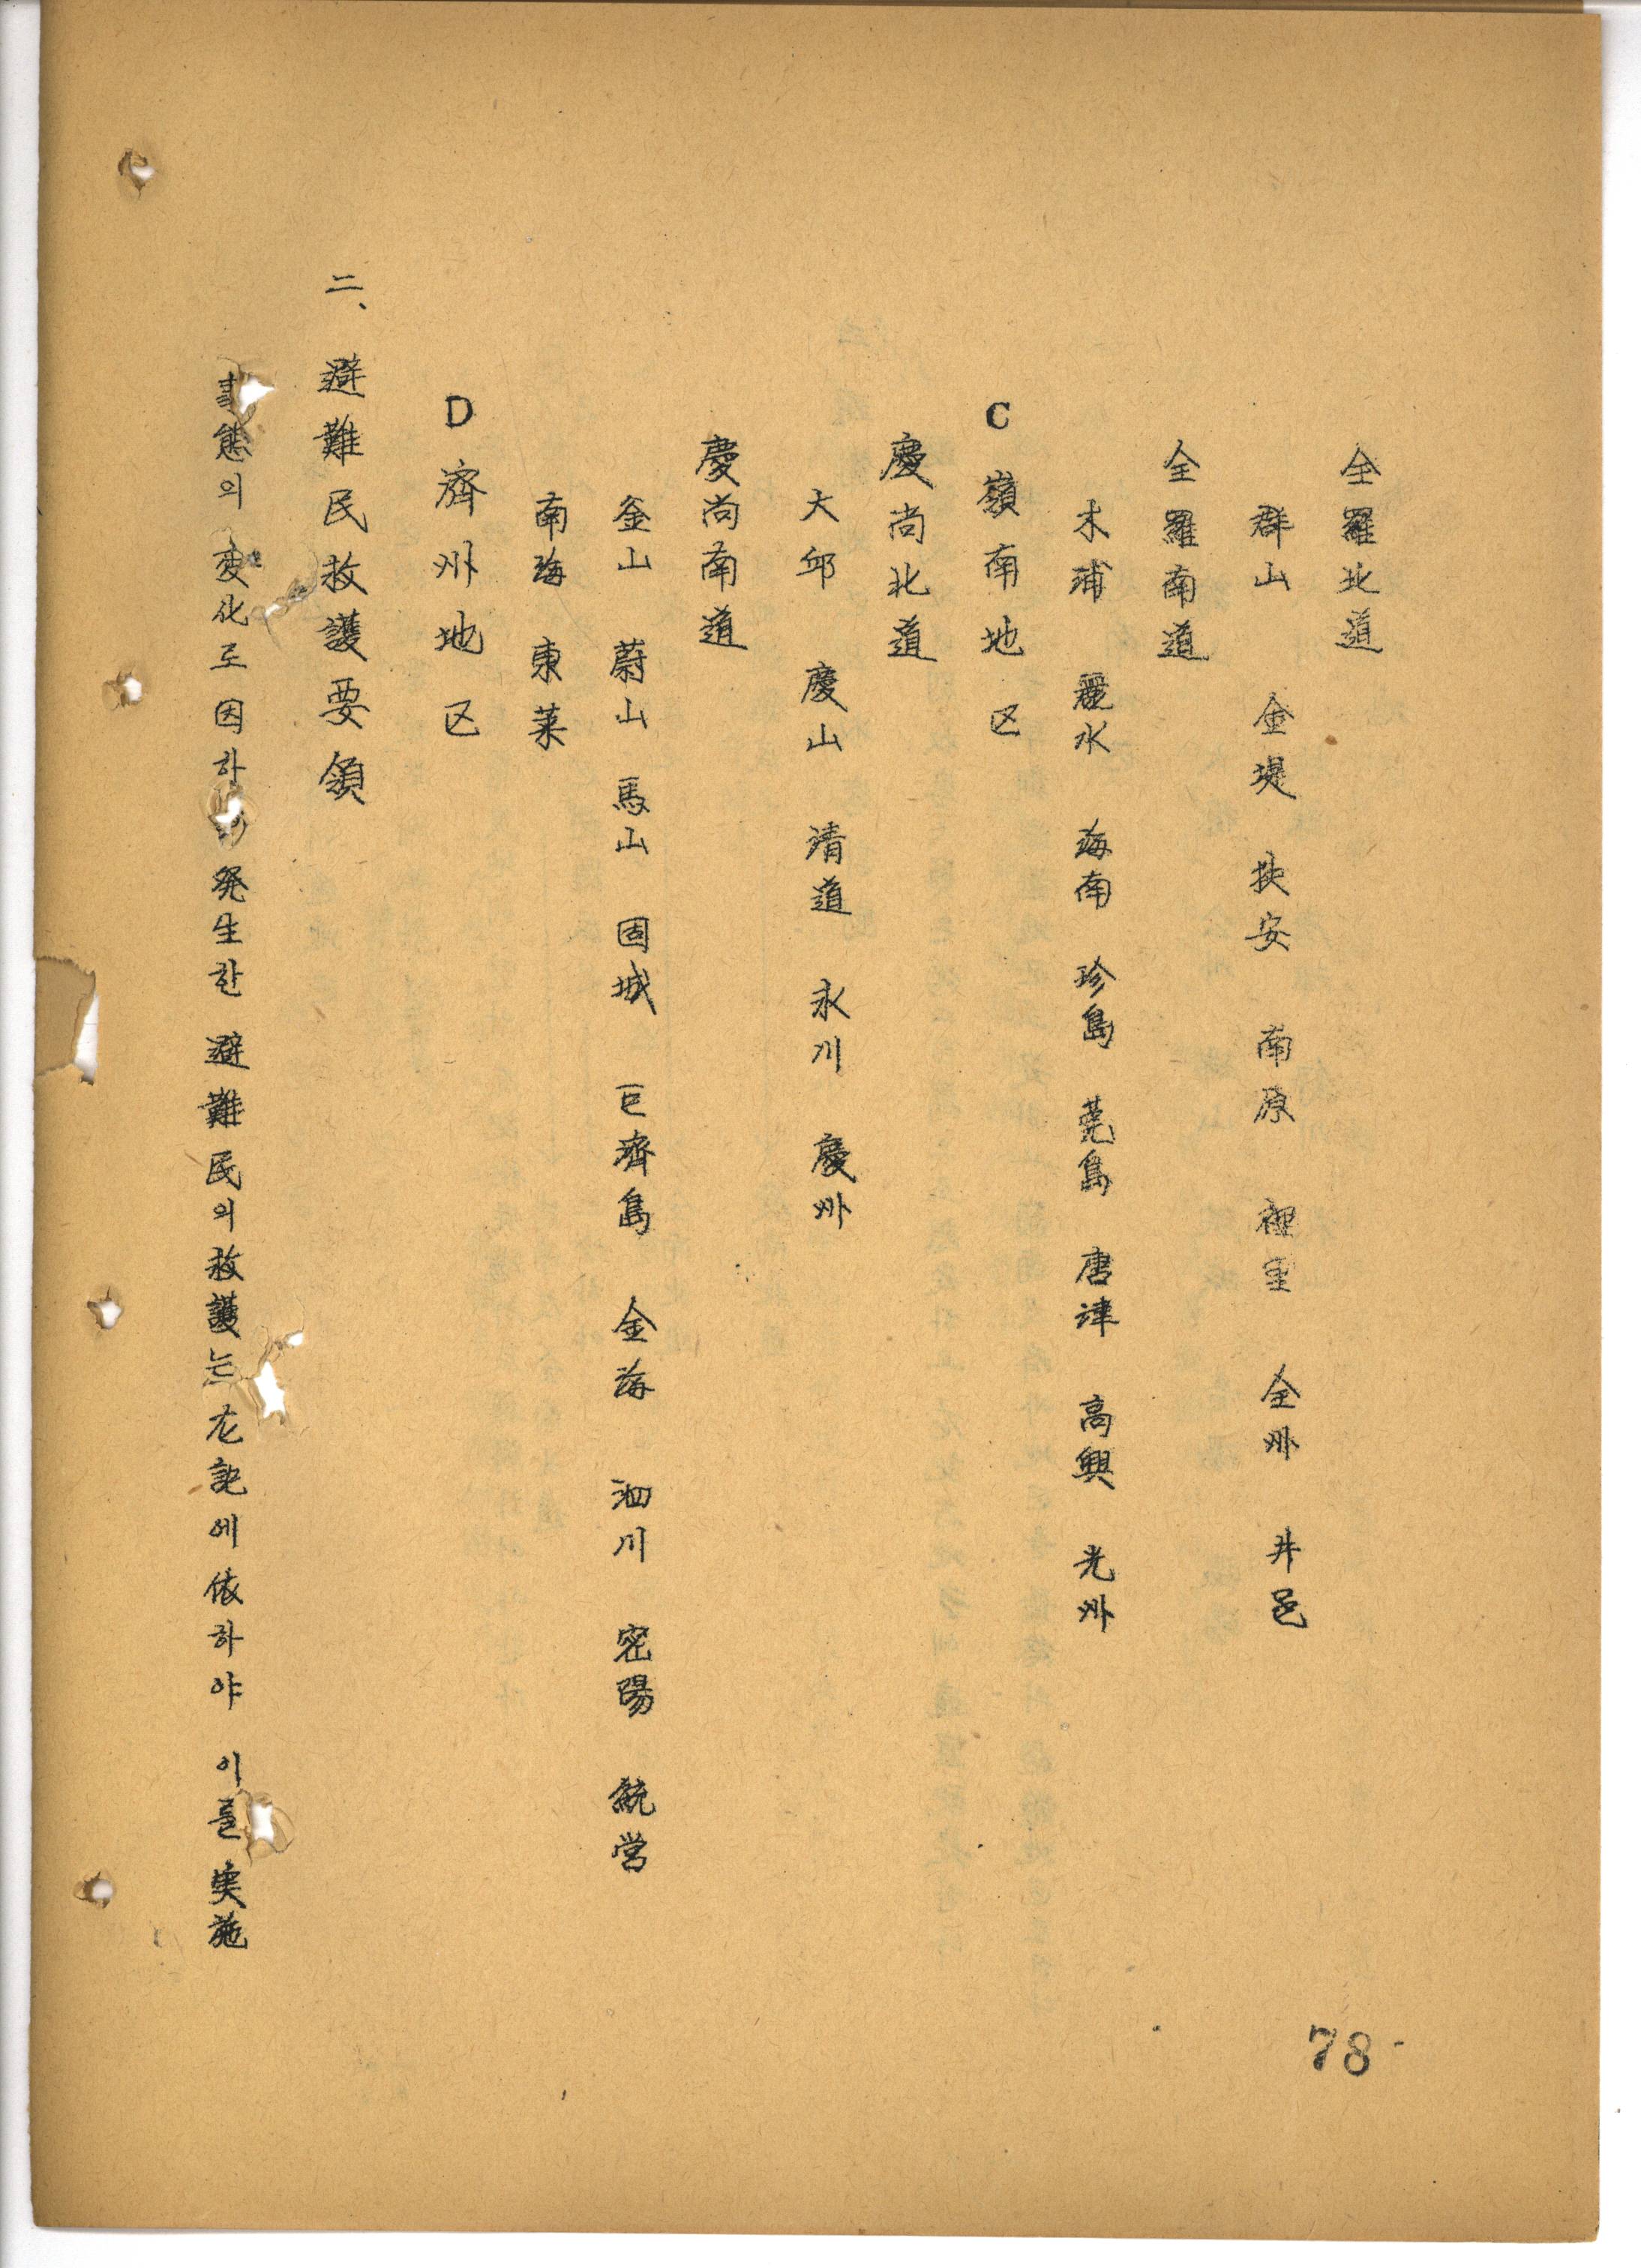 全羅北道
群山 金堤 扶安 南原 裡里 全州 井邑
全羅南道
木浦 麗水 海南 珍島 莞島 唐津 高興 光州
C 嶺南地区
慶尚北道
大邱 慶山 清道 永川 慶州
慶尚南道
釜山 蔚山 馬山 固城 巨濟島 金海 泗川 密陽 統営
南海 東莱
D 濟州地区
二、避難民救護要領
事態의 変化로 因하 発生한 避難民의 救護는 左記에 依하야 이를 実施
78